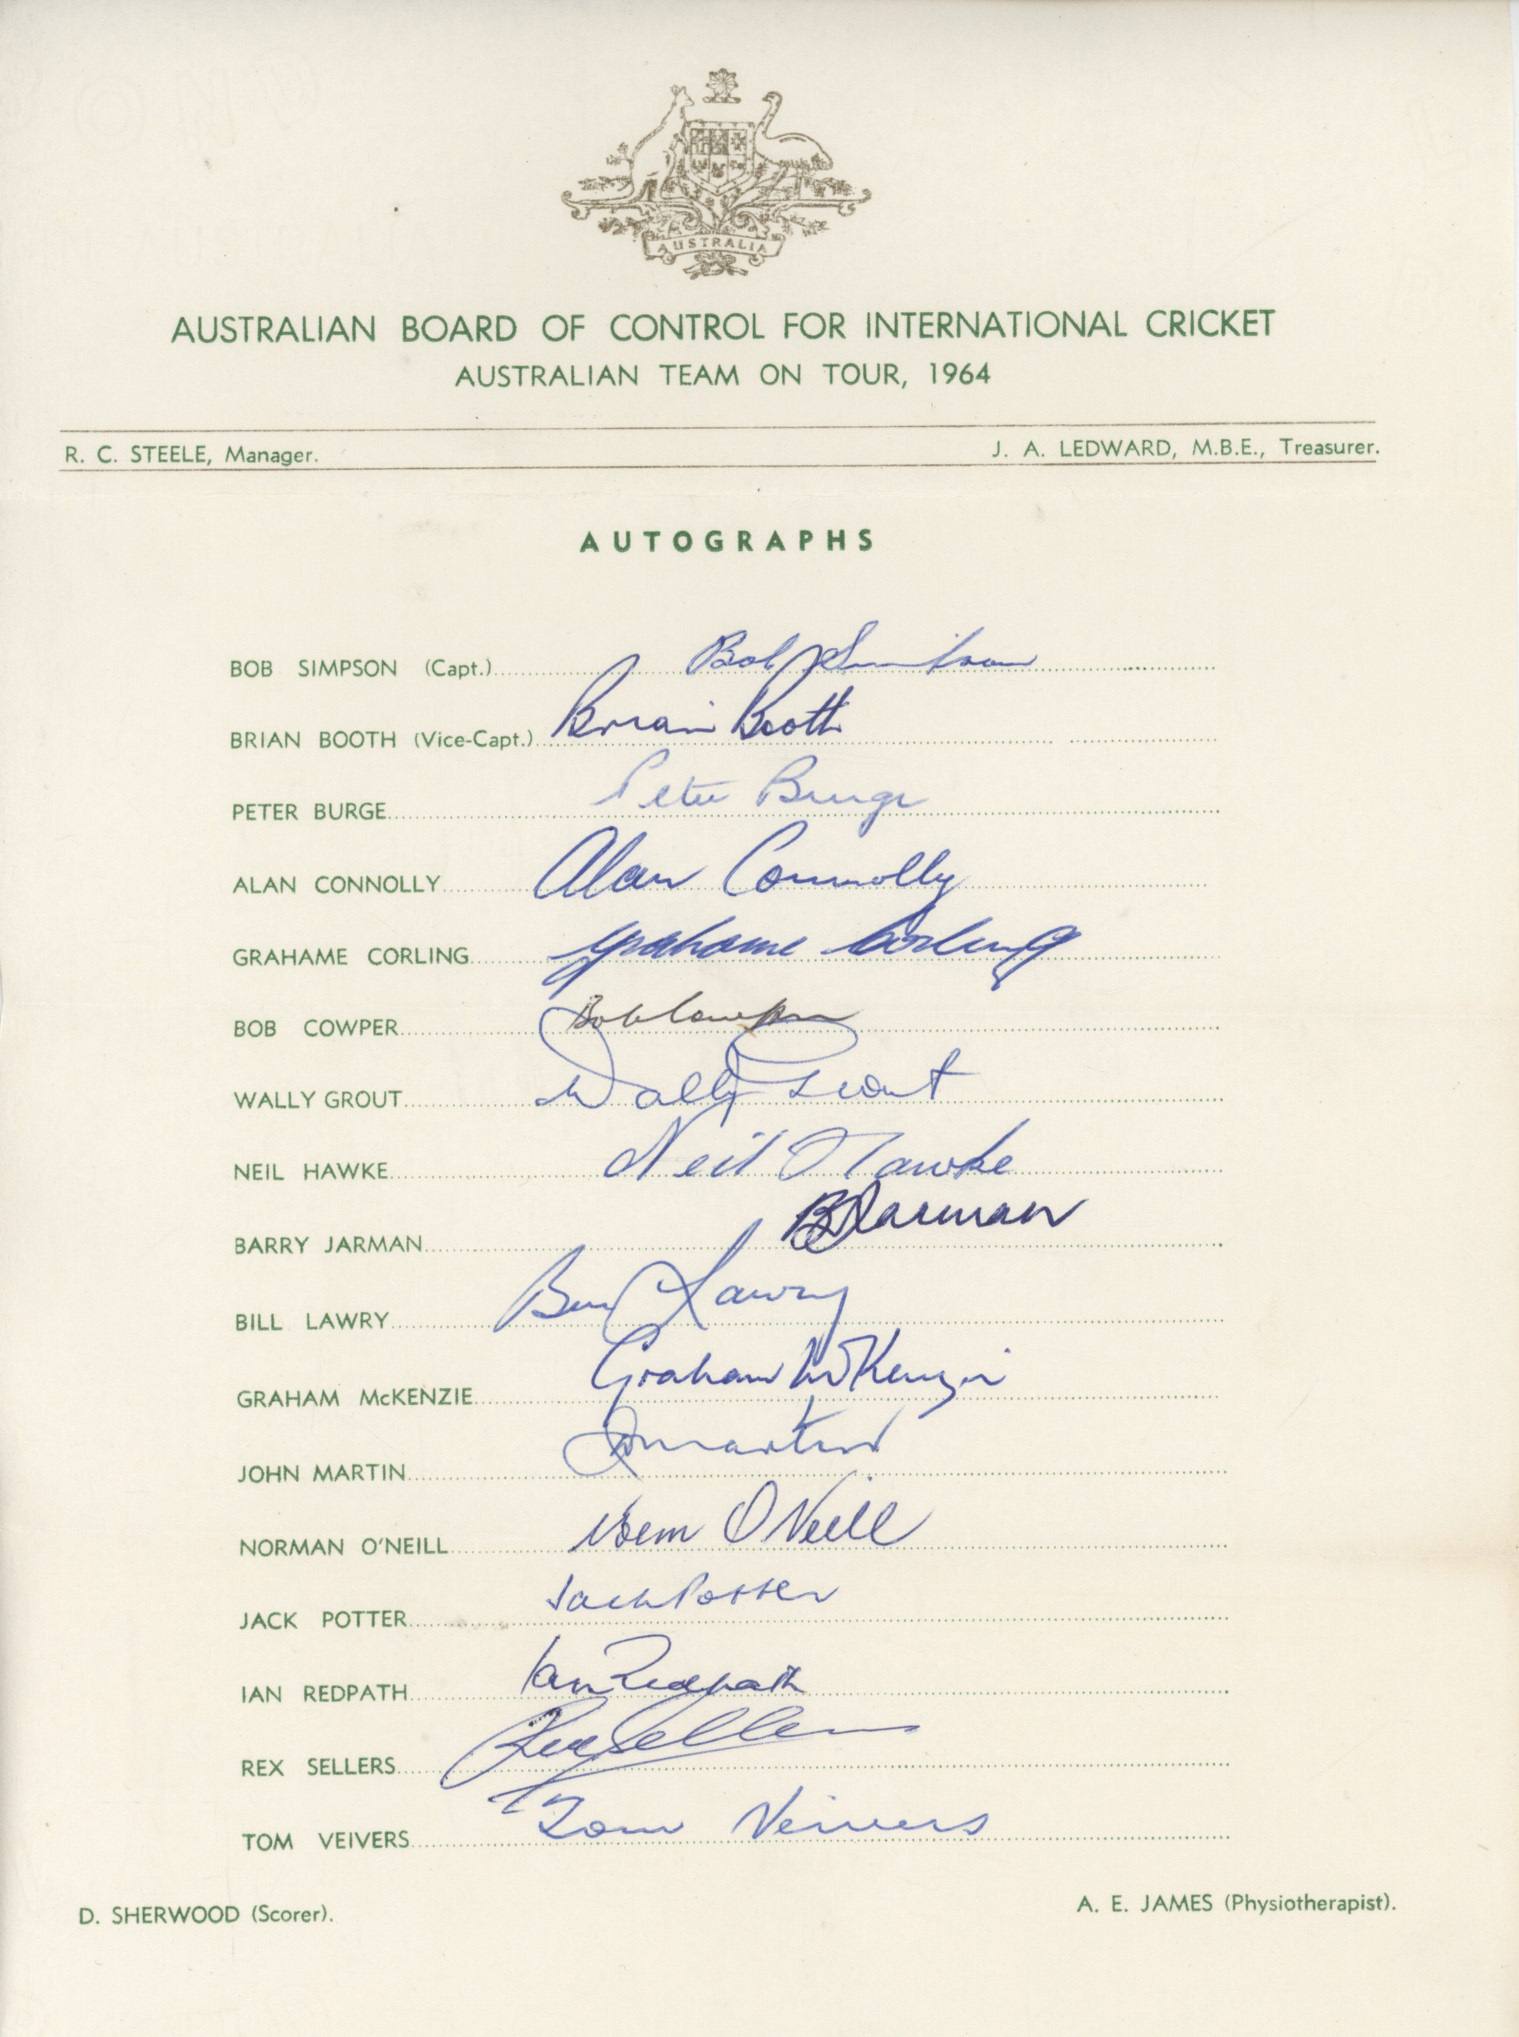 AUSTRALIA
AUSTRALIAN BOARD OF CONTROL FOR INTERNATIONAL CRICKET
AUSTRALIAN TEAM ON TOUR, 1964
R. C. STEELE, Manager. J. A. LEDWARD, M.B.E., Treasurer.
AUTOGRAPHS
BOB SIMPSON (Capt.) Bob Simpson
BRIAN BOOTH (Vice-Capt.) Brian Booth
PETER BURGE Peter Burge
ALAN CONNOLLY Alan Connolly
GRAHAME CORLING Grahame Corling
BOB COWPER Bob Cowper
WALLY GROUT Wally Grout
NEIL HAWKE Neil Hawke
BARRY JARMAN B Jarman
BILL LAWRY Bill Lawry
GRAHAM McKENZIE Graham McKenzie
JOHN MARTIN J Martin
NORMAN O'NEILL Norm O'Neill
JACK POTTER Jack Potter
IAN REDPATH Ian Redpath
REX SELLERS Rex Sellers
TOM VEIVERS Tom Veivers
D. SHERWOOD (Scorer). A. E. JAMES (Physiotherapist).